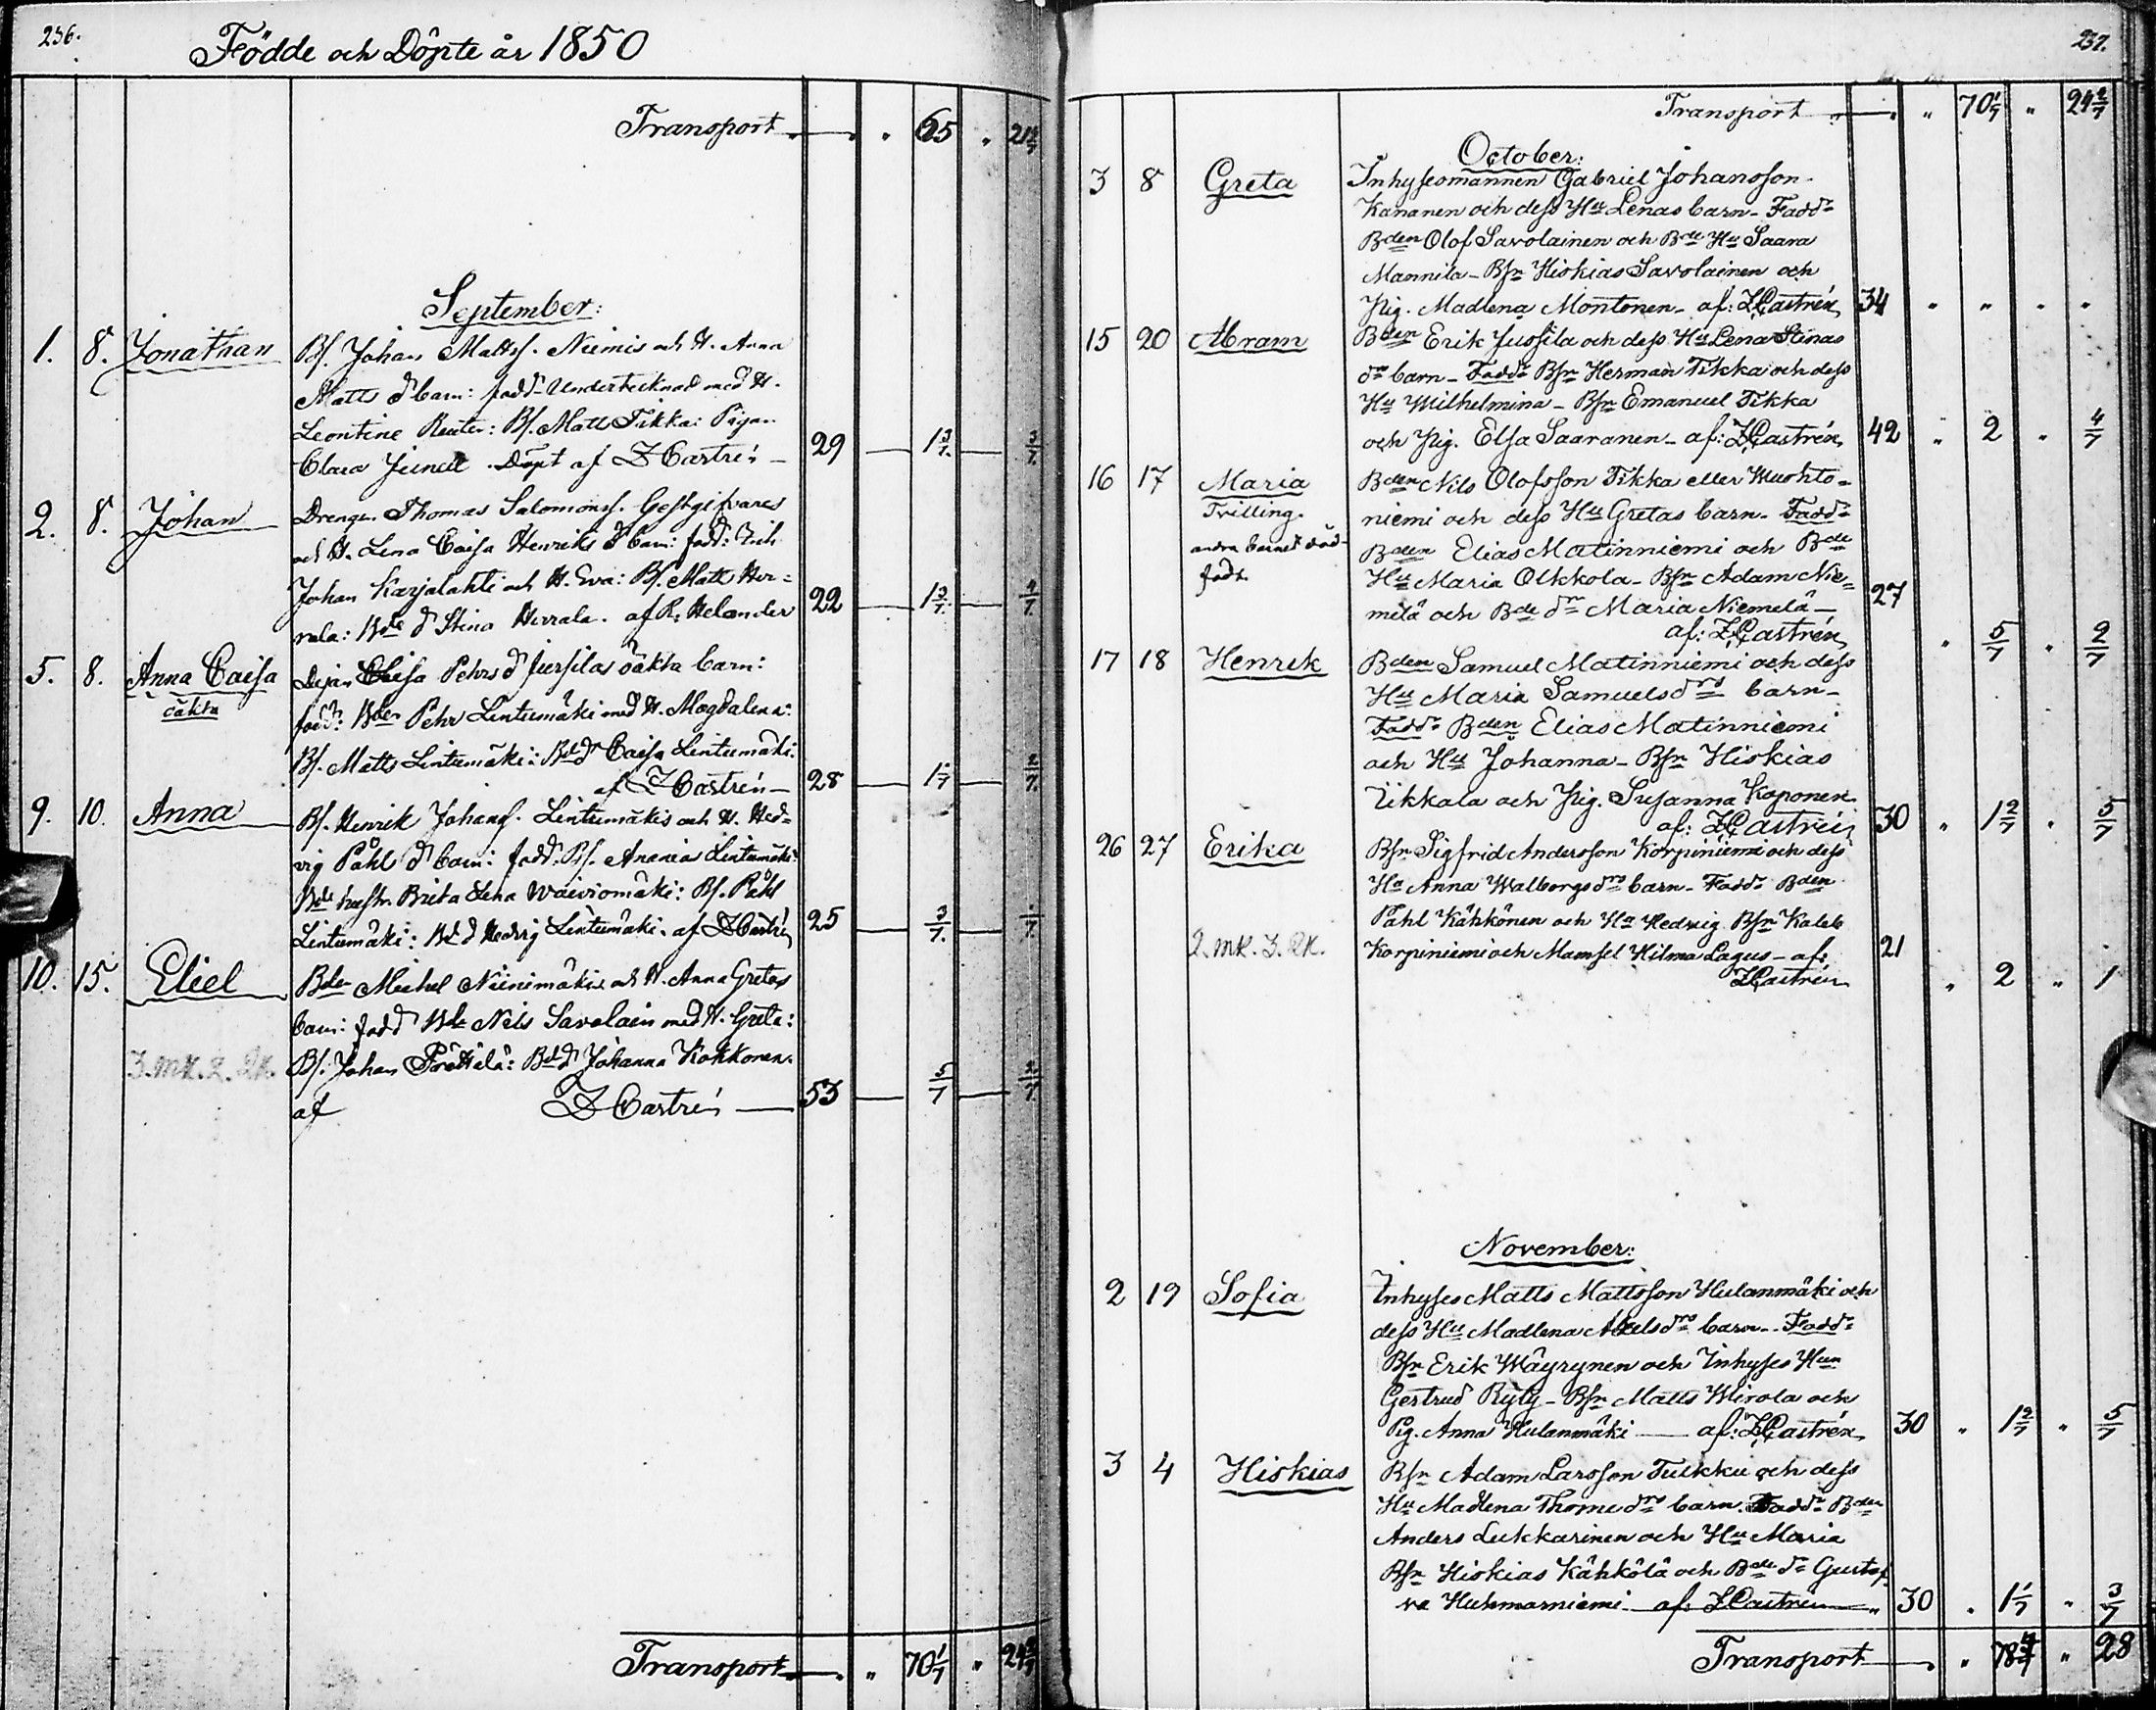 236.
Födde och Döpte år 1850
Transport 65 " 21
September:
1. 8. Jonathan Bs. Johan Mattss. Niemis och H. Anna
Matts d barn: fadd. Undertecknad med H.
Leontine Reuter: Bs. Matts Tikka: Pigan
Clara Döpt af Z Castrén 29 1 3/7 3/7
2. 8. Johan Drengen Thomas Salomonss. Gestgifvares
och H. Lena Caisa Henriks d barn: fadd: Inh
Johan Karjalahti och H. Eva: Bs. Matts Her=
rala: Bde d Stina Herrala. af R. Helander 22 1 3/7 4/7
5. 8. Anna Caisa Caisa Pehrs d Juesilas oäkta barn:
oäkta
fadd: Bden Pehr Lintumäki med H. Magdalena:
Bs. Matts Lintumäki: Bde d Caisa Lintumäki:
af Z Castrén 28 1 1/7 2/7
9. 10. Anna Bs. Henrik Johanss. Lintumäkis och H. Hed=
vig Påhl d barn: fadd. Bs. Anania Lintumäki:
Bde hustr. Brita Lena Waiviomäki: Bs. Påhl
Lintumäki: Bde d Hedvig Lintumäki. af Z Castrén 25 3/7 1/7
10. 15. Eliel Bden Michel Niinimäkis och H. Anna Gretas
barn: fadd Bde Nils Savolain med H. Greta:
3. mk. 2. Qk. Bs. Johan Pröttälä: Bde d Johanna Kokkonen.
af Z Castrén 53 5/7 2/7
Transport " 70 1/7 " 24 2/7
237.
Transport " 70 1/7 " 24 2/7
October:
3 8 Greta Inhysesmannen Gabriel Johansson
Kananen och dess Hu Lenas barn - Fadd:
Bden Olof Savolainen och Bde Hu Saara
Mannila - Bsn Hiskias Savolainen och
Pig. Madlena Montonen - af: Z Castrén 34 " " " "
15 20 Abram Bden Erik Jussila och dess Hu Lena Stinas
drs barn - Fadd: Bsn Herman Tikka och dess
Hu Wilhelmina - Bsn Emanuel Tikka
och Pig. Elsa Saaranen - af: Z Castrén 42 " 2 " 4/7
16 17 Maria Bden Nils Olofsson Tikka eller Wuohto=
Tvilling. niemi och dess Hu Gretas barn - Fadd:
andra barnet död= Bden Elias Matinniemi och Bde
födt. Hu Maria Olkkola - Bsn Adam Nie=
melä och Bde dr Maria Niemelä — 27
af: Z Castrén " 5/7 " 2/7
17 18 Henrik Bden Samuel Matinniemi och dess
Hu Maria Samuelsdrs barn -
Fadd: Bden Elias Matinniemi
och Hu Johanna - Bsn Hiskias
Ukkola och Pig. Susanna Koponen
af: Z Castrén 30 " 1 2/7 " 5/7
26 27 Erika Bsn Sigfrid Andersson Korpiniemi och dess
Hu Anna Walborgsdrs barn - Fadd: Bden
Påhl Kähkönen och Hu Hedwig Bsn Kaleb
2. mk. 3. Qk. Korpiniemi och Mamsel Hilma Lagus - af: 21
Z Castrén " 2 " 1
November:
2 19 Sofia Inhyses Matts Mattsson Hulanmäki och
dess Hu Madlena Abelsdrs barn - Fadd:
Bsn Erik Wäyrynen och Inhyses Hun
Gertrud Ryly - Bsn Matts Wirola och
Pig. Anna Hulanmäki — af: Z Castrén 30 " 1 2/7 " 5/7
3 4 Hiskias Bsn Adam Larsson Tuikku och dess
Hu Madlena Thomedrs barn. Fadd: Bden
Anders Lukkarinen och Hu Maria
Bsn Hiskias Kähkölä och Bde dr Gustaf=
va Huhmarniemi - af: Z Castrén " 30 " 1 1/7 " 3/7
Transport " 78 4/7 " 28